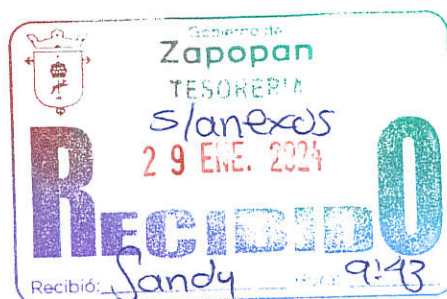 Gobierno de
Zapopan
TESORERIA
s/anexos
29 ENE. 2024
RECIBIDO
Recibió: Sandy Hora: 9:43